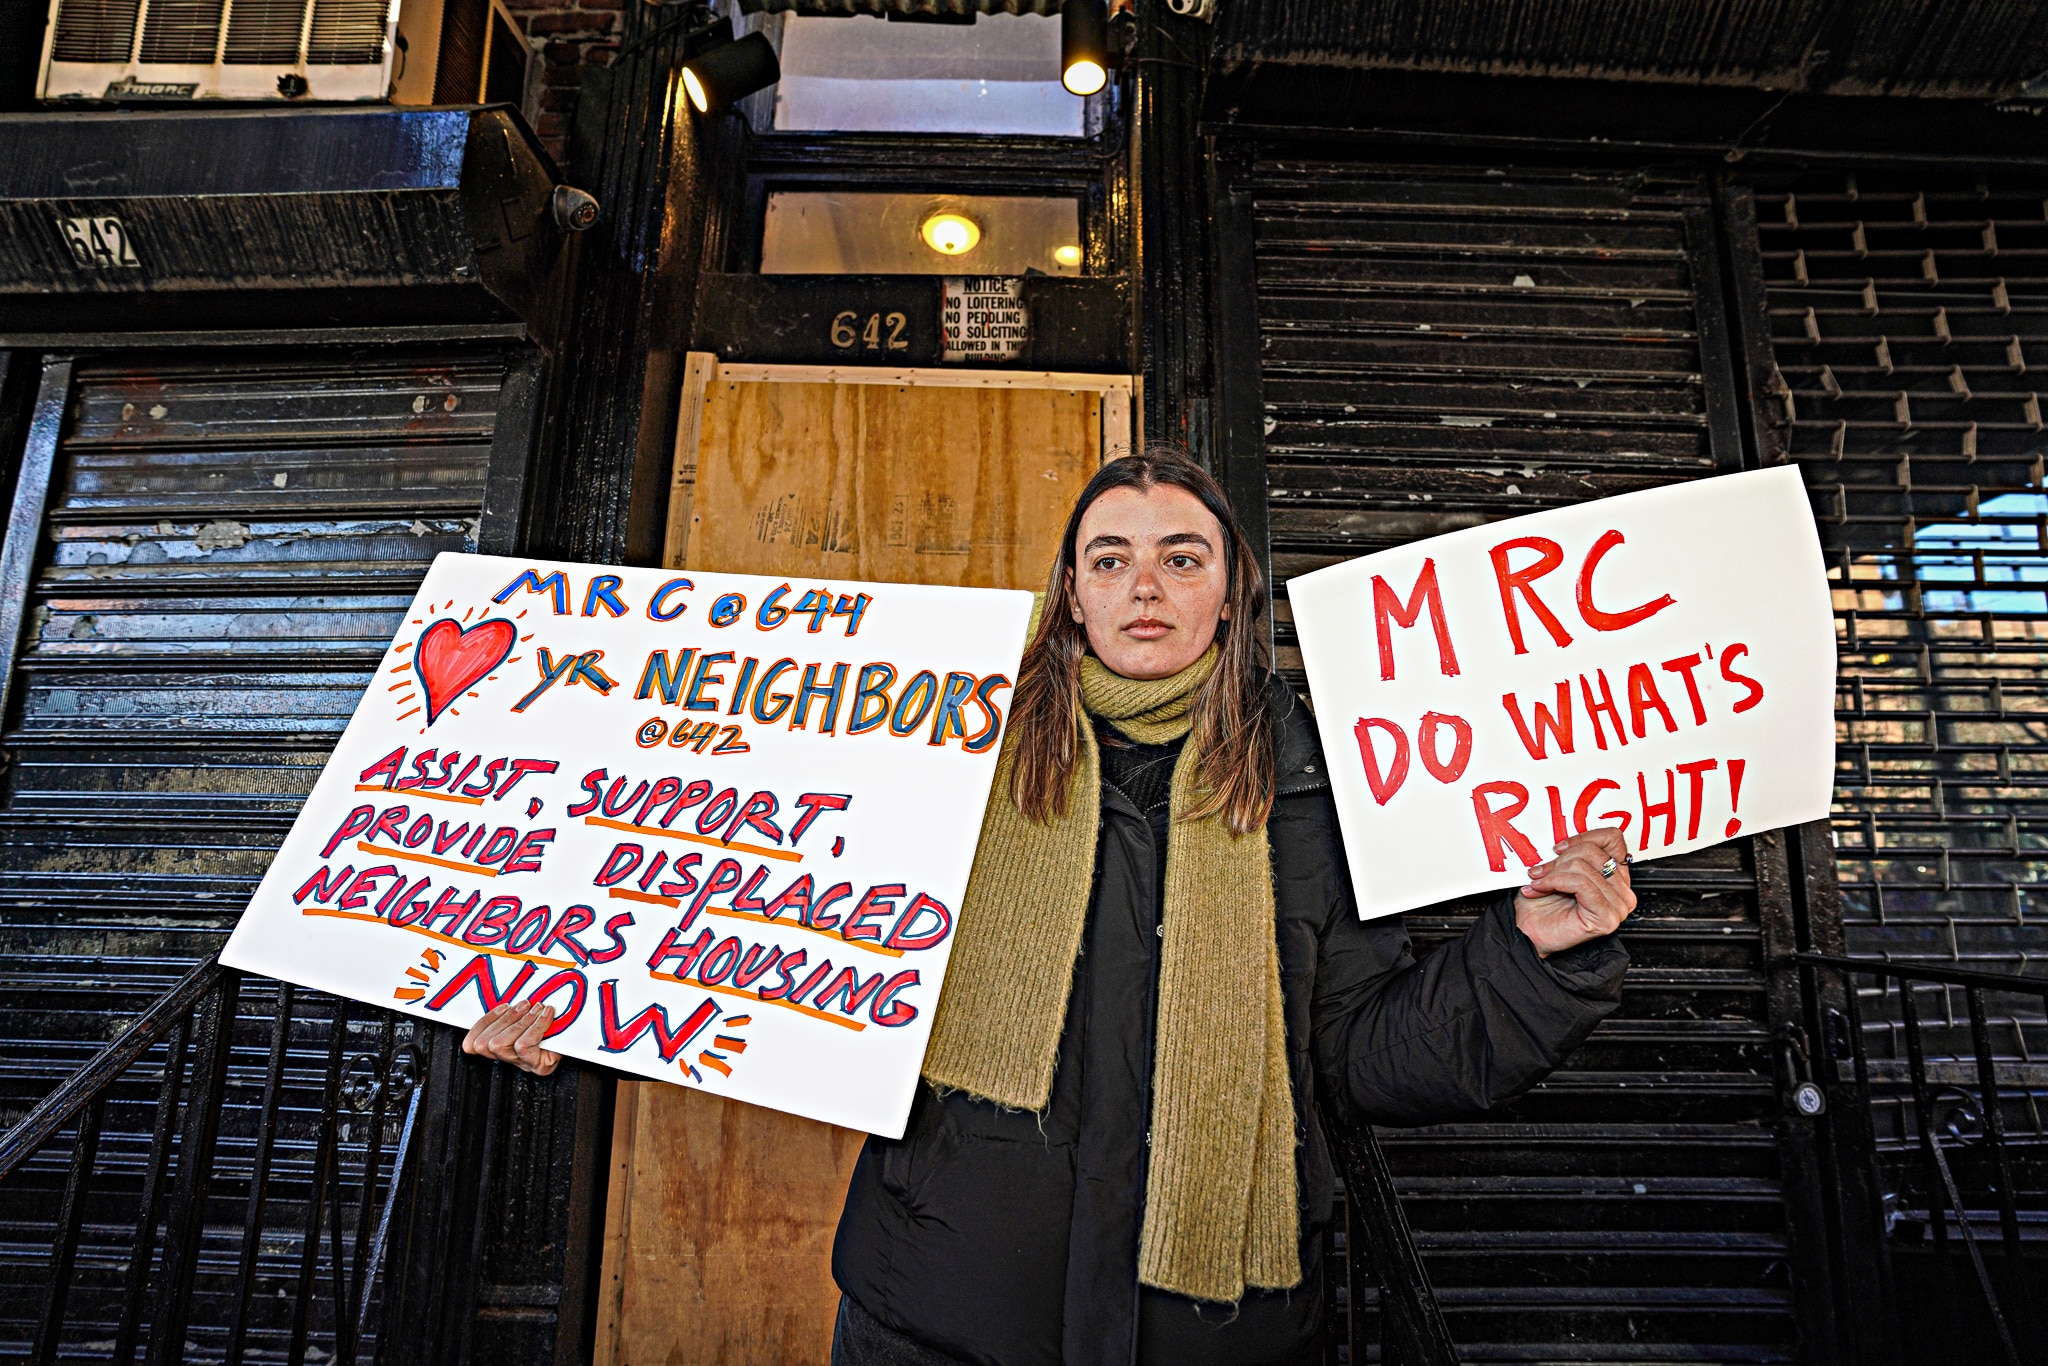 642
642
NOTICE
NO LOITERING
NO PEDDLING
NO SOLICITING
ALLOWED IN THIS
BUILDING
MRC @ 644
YR NEIGHBORS
@642
ASSIST, SUPPORT,
PROVIDE DISPLACED
NEIGHBORS HOUSING
NOW
MRC
DO WHAT'S
RIGHT!